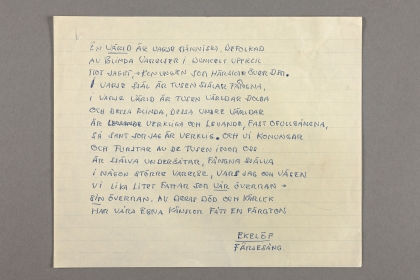 EN VÄRLD ÄR VARJE MÄNNISKA, BEFOLKAD
AV BLINDA VARELSER I DUNKELT UPPROR
MOT JAGET, KONUNGEN SOM HÄRSKAR ÖVER DEM.
I VARJE SJÄL ÄR TUSEN SJÄLAR FÅNGNA,
I VARJE VÄRLD ÄR TUSEN VÄRLDAR DOLDA
OCH DESSA BLINDA, DESSA UNDRE VÄRLDAR
ÄR VERKLIGA OCH LEVANDE, FAST OFULLGÅNGNA,
SÅ SANT SOM JAG ÄR VERKLIG. OCH VI KONUNGAR
OCH FURSTAR AV DE TUSEN INOM OSS
ÄR SJÄLVA UNDERSÅTAR, FÅNGNA SJÄLVA
I NÅGON STÖRRE VARELSE, VARS JAG OCH VÄSEN
VI LIKA LITET FATTAR SOM VÅR ÖVERMAN
SIN ÖVERMAN. AV DERAS DÖD OCH KÄRLEK
HAR VÅRA EGNA KÄNSLOR FÅTT EN FÄRGTON.
EKELÖF
FÄRJESÅNG.